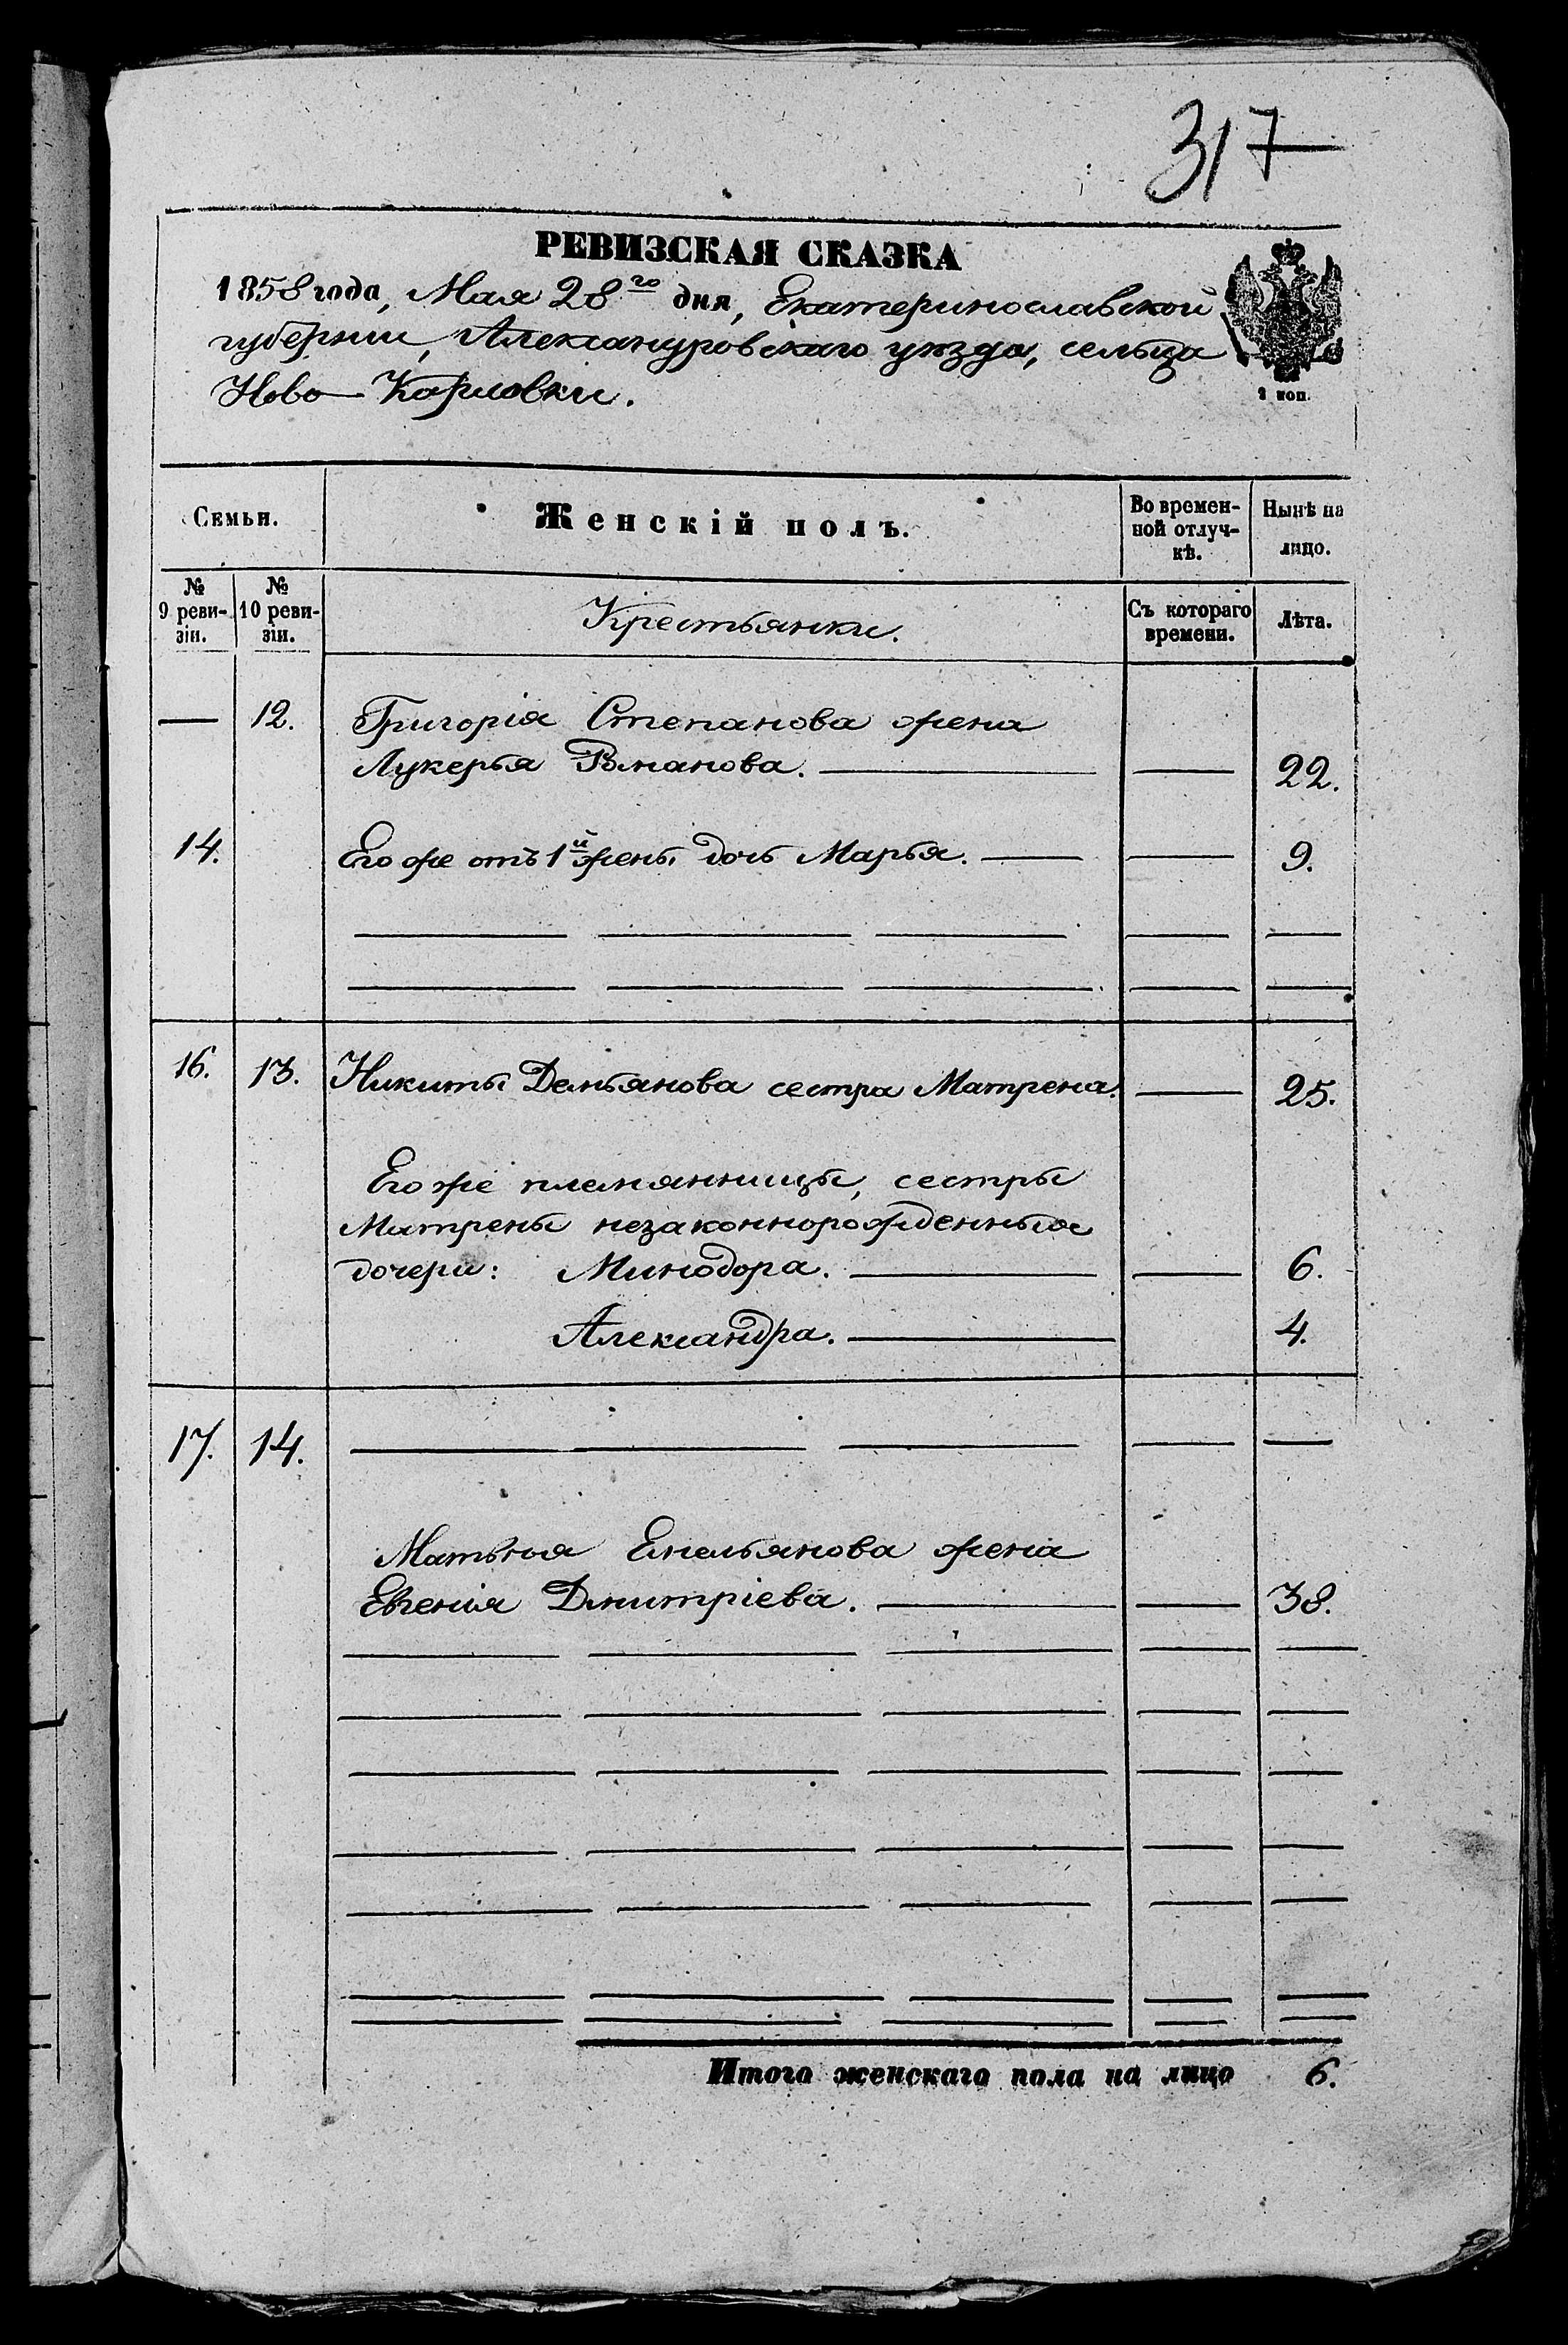 317
РЕВИЗСКАЯ СКАЗКА
1858 года, Мая 28го дня, Екатеринославской
губернии, Александровскаго уѣзда, сельца
Ново-Карловки.
2 коп.
Семьи. Женскій полъ. Во времен-ной отлуч-кѣ. Нынѣ на лицо.
№ 9 реви-зіи. № 10 реви-зіи. Крестьянки. Съ котораго времени. Лѣта.
— 12. Григорія Степанова жена
Лукерья Романова. — — 22.
14. Его же отъ 1й жены дочь Марья. — — 9.
16. 13. Никиты Демьянова сестра Матрена. — 25.
Его же племянницы, сестры
Матрены незаконнорожденныя
дочери: Минодора. — — 6.
Александра. — 4.
17. 14. — — — —
Матвея Емельянова жена
Евгенія Дмитріева. — — 38.
Итого женскаго пола на лицо 6.